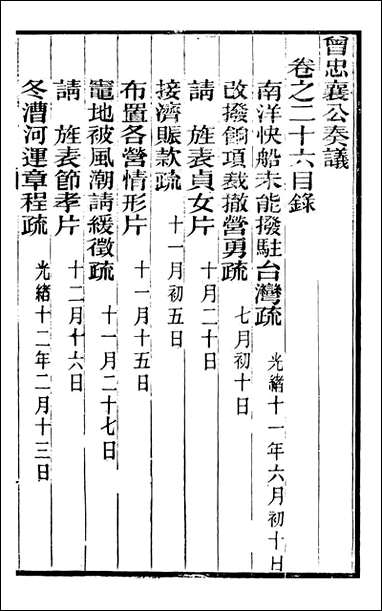 曾忠襄公奏議
卷之二十六目錄
南洋快船未能撥駐台灣疏 光緒十一年六月初十日
改撥餉項裁撤營勇疏 七月初十日
請 旌表貞女片 十月二十日
接濟賑款疏 十一月初五日
布置各營情形片 十一月十五日
竈地被風潮請緩徵疏 十一月二十七日
請 旌表節孝片 十二月十六日
冬漕河運章程疏 光緒十二年二月十三日